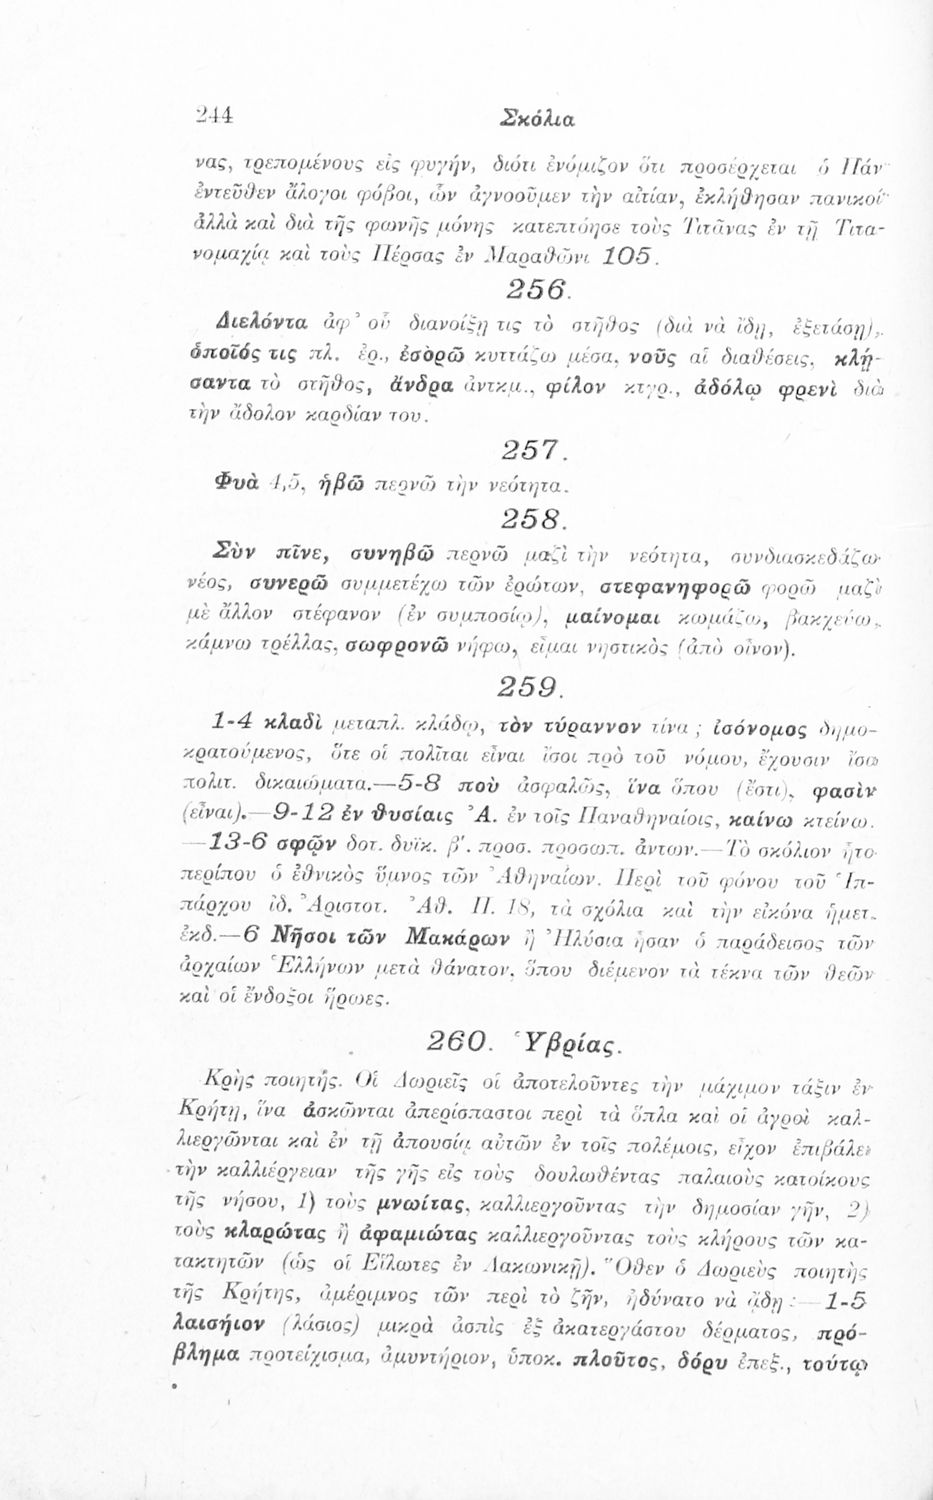 244 Σκόλια
νας, τρεπομένους εἰς φυγήν, διότι ἐνόμιζον ὅτι προσέρχεται ὁ Πάν·
ἐντεῦθεν ἄλογοι φόβοι, ὧν ἀγνοοῦμεν τὴν αἰτίαν, ἐκλήθησαν πανικοί·
ἀλλὰ καὶ διὰ τῆς φωνῆς μόνης κατεπτόησε τοὺς Τιτᾶνας ἐν τῇ Τιτα-
νομαχίᾳ καὶ τοὺς Πέρσας ἐν Μαραθῶνι 105.
256.
Διελόντα ἀφ’ οὗ διανοίξῃ τις τὸ στῆθος (διὰ νὰ ἴδῃ, ἐξετάσῃ),
ὁποῖός τις πλ. ἐρ., ἐσορῶ κυττάζω μέσα, νοῦς αἱ διαθέσεις, κλῄ-
σαντα τὸ στῆθος, ἄνδρα ἀντκμ., φίλον κτγρ., ἀδόλῳ φρενὶ διὰ
τὴν ἄδολον καρδίαν του.
257.
Φυὰ 4,5, ἡβῶ περνῶ τὴν νεότητα.
258.
Σὺν πῖνε, συνηβῶ περνῶ μαζὶ τὴν νεότητα, συνδιασκεδάζω
νέος, συνερῶ συμμετέχω τῶν ἐρώτων, στεφανηφορῶ φορῶ μαζὶ
μὲ ἄλλον στέφανον (ἐν συμποσίῳ), μαίνομαι κωμάζω, βακχεύω,
κάμνω τρέλλας, σωφρονῶ νήφω, εἶμαι νηστικὸς (ἀπὸ οἶνον).
259.
1-4 κλαδὶ μεταπλ. κλάδῳ, τὸν τύραννον τίνα ; ἰσόνομος δημο-
κρατούμενος, ὅτε οἱ πολῖται εἶναι ἴσοι πρὸ τοῦ νόμου, ἔχουσιν ἴσα
πολιτ. δικαιώματα.—5-8 ποὺ ἀσφαλῶς, ἵνα ὅπου (ἔστι), φασὶν
(εἶναι).—9-12 ἐν θυσίαις Ἀ. ἐν τοῖς Παναθηναίοις, καίνω κτείνω.
—13-6 σφῷν δοτ. δυϊκ. β΄. προσ. προσωπ. ἀντων.—Τὸ σκόλιον ἦτο
περίπου ὁ ἐθνικὸς ὕμνος τῶν Ἀθηναίων. Περὶ τοῦ φόνου τοῦ Ἱπ-
πάρχου ἰδ. Ἀριστοτ. Ἀθ. Π. 18, τὰ σχόλια καὶ τὴν εἰκόνα ἡμετ.
ἐκδ.—6 Νῆσοι τῶν Μακάρων ἢ Ἠλύσια ἦσαν ὁ παράδεισος τῶν
ἀρχαίων Ἑλλήνων μετὰ θάνατον, ὅπου διέμενον τὰ τέκνα τῶν θεῶν
καὶ οἱ ἔνδοξοι ἥρωες.
260. Ὑβρίας.
Κρὴς ποιητής. Οἱ Δωριεῖς οἱ ἀποτελοῦντες τὴν μάχιμον τάξιν ἐν
Κρήτῃ, ἵνα ἀσκῶνται ἀπερίσπαστοι περὶ τὰ ὅπλα καὶ οἱ ἀγροὶ καλ-
λιεργῶνται καὶ ἐν τῇ ἀπουσίᾳ αὐτῶν ἐν τοῖς πολέμοις, εἶχον ἐπιβάλει
τὴν καλλιέργειαν τῆς γῆς εἰς τοὺς δουλωθέντας παλαιοὺς κατοίκους
τῆς νήσου, 1) τοὺς μνωίτας, καλλιεργοῦντας τὴν δημοσίαν γῆν, 2)
τοὺς κλαρώτας ἢ ἀφαμιώτας καλλιεργοῦντας τοὺς κλήρους τῶν κα-
τακτητῶν (ὡς οἱ Εἵλωτες ἐν Λακωνικῇ). Ὅθεν ὁ Δωριεὺς ποιητὴς
τῆς Κρήτης, ἀμέριμνος τῶν περὶ τὸ ζῆν, ἠδύνατο νὰ ᾄδῃ :—1-5
λαισήιον (λάσιος) μικρὰ ἀσπὶς ἐξ ἀκατεργάστου δέρματος, πρό-
βλημα προτείχισμα, ἀμυντήριον, ὑποκ. πλοῦτος, δόρυ ἐπεξ., τούτῳ